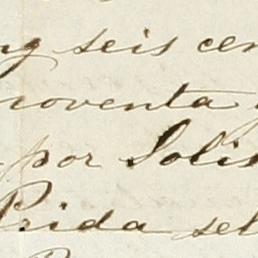 seis cen
noventa
por Solis
Prida sel